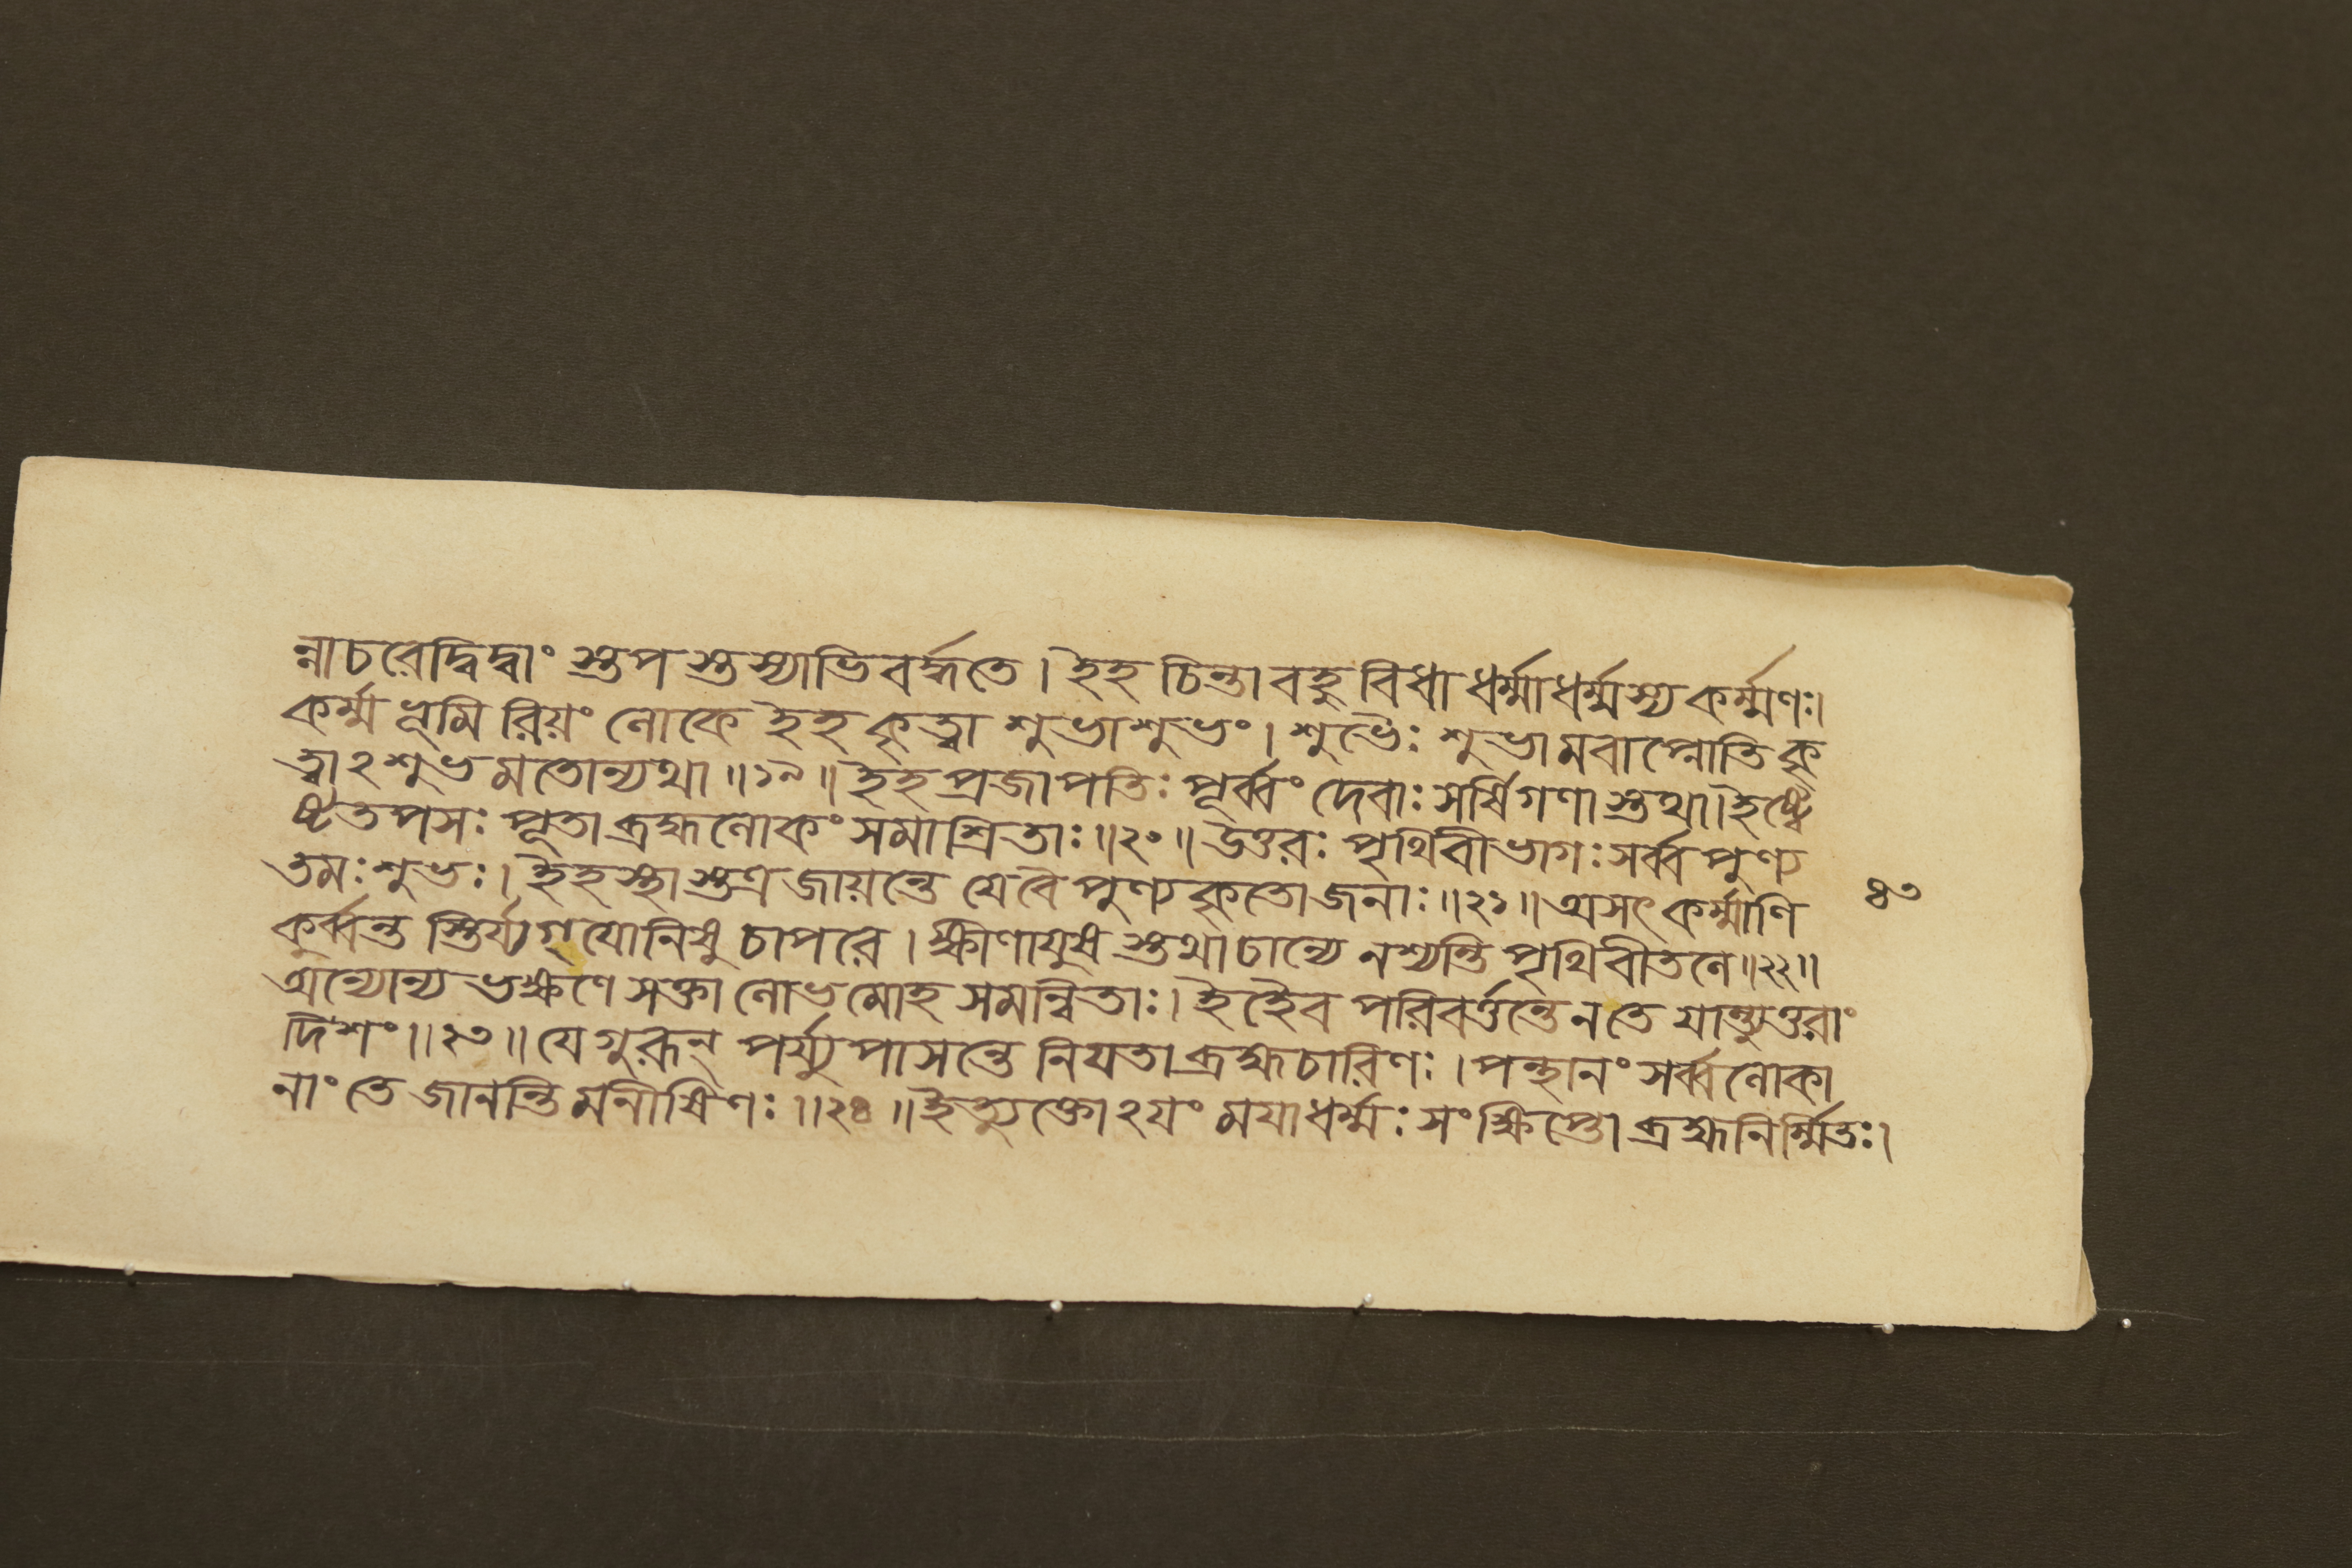 ন্নাচরেদ্বিদ্বাং স্তুপস্তস্যাভিবর্দ্ধতে। ইহ চিন্তা বহুবিধা ধর্ম্মাধর্ম্মস্য কর্ম্মণঃ।
কর্ম্মভূমিরিয়ং লোকে ইহ কৃত্বা শুভাশুভং। শুভৈঃ শুভামবাপ্নোতি কৃ
ত্বাঽশুভমতোন্যথা॥১৯॥ইহ প্রজাপতিঃ পূর্ব্বং দেবাঃ সর্ষিগণাস্তথা।ইষ্ট্বে
ষ্টতপসঃ পূতা ব্রহ্মলোকং সমাশ্রিতাঃ॥২০॥উত্তরঃ পৃথিবীভাগঃ সর্ব্বপুণ্য
তমঃ শুভঃ। ইহস্থাস্তত্র জায়ন্তে যে বৈ পুণ্যকৃতো জনাঃ॥২১॥অসৎকর্ম্মাণি
৪৩
কুর্ব্বন্ত স্তির্য্যগ্যোনিষু চাপরে। ক্ষীণায়ুষ স্তথা চান্যে নশ্যন্তি পৃথিবীতলে॥২২॥
অন্যোন্যভক্ষণে সক্তা লোভমোহসমন্বিতাঃ। ইহৈব পরিবর্ত্তন্তে ন তে যান্ত্যুত্তরাং
দিশং॥২৩॥যে গুরূন্ পর্য্যুপাসন্তে নিযতা ব্রহ্মচারিণঃ। পন্থানং সর্ব্বলোকা
নাং তে জানন্তি মনীষিণঃ॥২৪॥ইত্যুক্তোঽযং ময়া ধর্ম্মঃ সংক্ষিপ্তো ব্রহ্মনির্ম্মিতঃ।